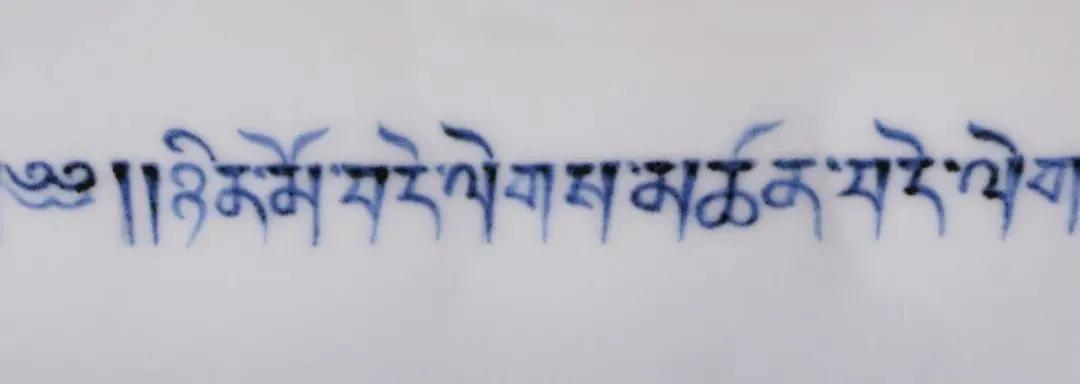 ༄༅། །ཉིན་མོ་བདེ་ལེགས་མཚན་བདེ་ལེག